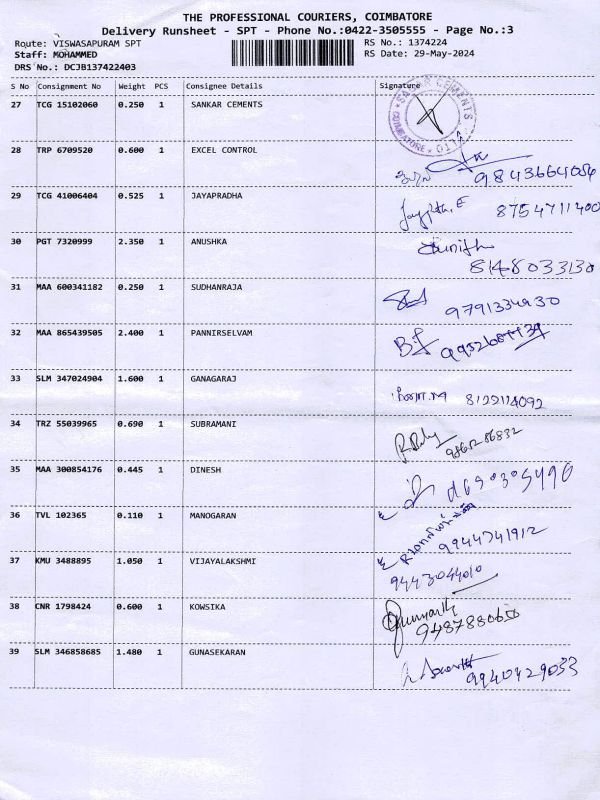 THE PROFESSIONAL COURIERS, COIMBATORE
Delivery Runsheet - SPT - Phone No.:0422-3505555 - Page No.:3
Route: VISWASAPURAM SPT
RS No.: 1374224
Staff: MOHAMMED
RS Date: 29-May-2024
DRS No.: DCJB137422403
S No Consignment No Weight PCS Consignee Details Signature
27 TCG 15102060 0.250 1 SANKAR CEMENTS
28 TRP 6709520 0.600 1 EXCEL CONTROL
9843664054
29 TCG 41006404 0.525 1 JAYAPRADHA
8754711400
30 PGT 7320999 2.350 1 ANUSHKA
8148033130
31 MAA 600341182 0.250 1 SUDHANRAJA
9791334930
32 MAA 865439505 2.400 1 PANNIRSELVAM
33 SLM 347024904 1.600 1 GANAGARAJ
8122114092
34 TRZ 55039965 0.690 1 SUBRAMANI
35 MAA 300854176 0.445 1 DINESH
36 TVL 102365 0.110 1 MANOGARAN
9944741912
37 KMU 3488895 1.050 1 VIJAYALAKSHMI
9443044010
38 CNR 1798424 0.600 1 KOWSIKA
9487880650
39 SLM 346858685 1.480 1 GUNASEKARAN
9940429033